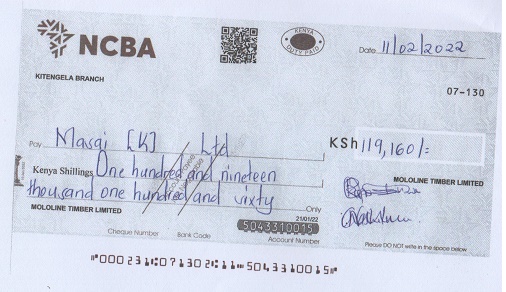 NCBA
KENYA
DUTY PAID
Date 11/02/2022
KITENGELA BRANCH
07-130
Pay Masai [K] Ltd
KSh 119,160/=
Kenya Shillings One hundred and nineteen
thousand one hundred and sixty Only
MOLOLINE TIMBER LIMITED
MOLOLINE TIMBER LIMITED
21/01/22
5043310015
Cheque Number Bank Code Account Number
Please DO NOT write in the space below
"000231:071302:11=5043310015"